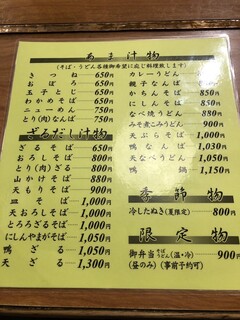 あま汁物
(そば・うどん各種御希望に応じ料理致します)
きつね 650円
おぼろ 650円
玉子とじ 650円
わかめそば 650円
にゅーめん 750円
とり(肉)なんば 750円
カレーうどん 850円
親子なんば 850円
かちん そば 850円
にしんそば 850円
なべ焼うどん 880円
みそ煮こみうどん 900円
天ぷらそば 1,000円
鴨なんば 1,030円
天なべうどん 1,050円
鴨鍋 1,150円
ざるだし汁物
ざるそば 650円
おろしそば 800円
とり(肉)ざる 800円
山かけそば 880円
天もりそば 900円
皿そば 1,000円
天おろしそば 1,000円
とろろざるそば 1,000円
にしんやまがそば 1,050円
鴨ざる 1,050円
天ざる 1,300円
季節物
冷したぬき(夏限定) 800円
限定物
御弁当 そば うどん (温・冷) 900円
(昼のみ)(事前予約可)